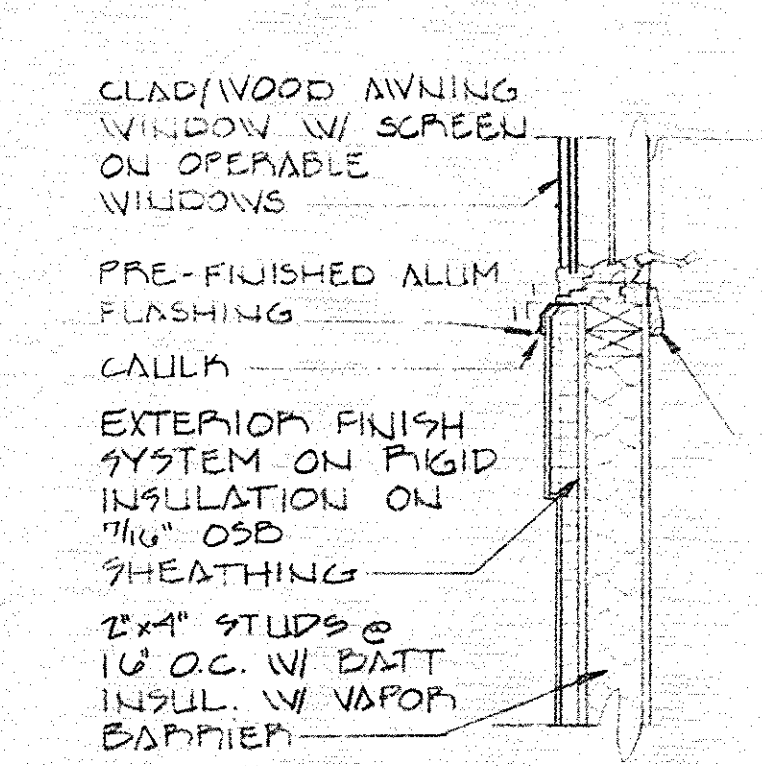 CLAD/WOOD AWNING
WINDOW W/ SCREEN
ON OPERABLE
WINDOWS
PRE-FINISHED ALUM
FLASHING
CAULK
EXTERIOR FINISH
SYSTEM ON RIGID
INSULATION ON
7/16" OSB
SHEATHING
2"x4" STUDS @
16" O.C. W/ BATT
INSUL. W/ VAPOR
BARRIER